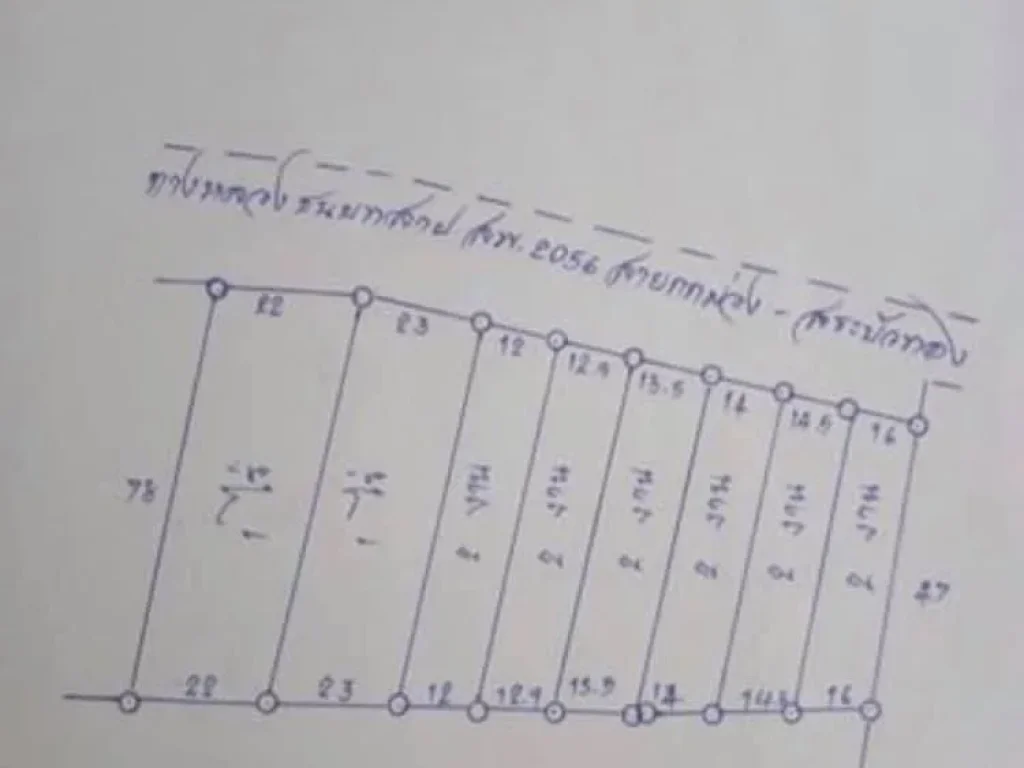 ทางหลวงชนบทสาย สพ. 2056 สายกกม่วง - สระบัวทอง
22
23
12
12.9
13.5
14
14.5
16
78
1 ไร่
1 ไร่
2 งาน
2 งาน
2 งาน
2 งาน
2 งาน
2 งาน
47
22
23
12
12.9
13.5
14
14.5
16